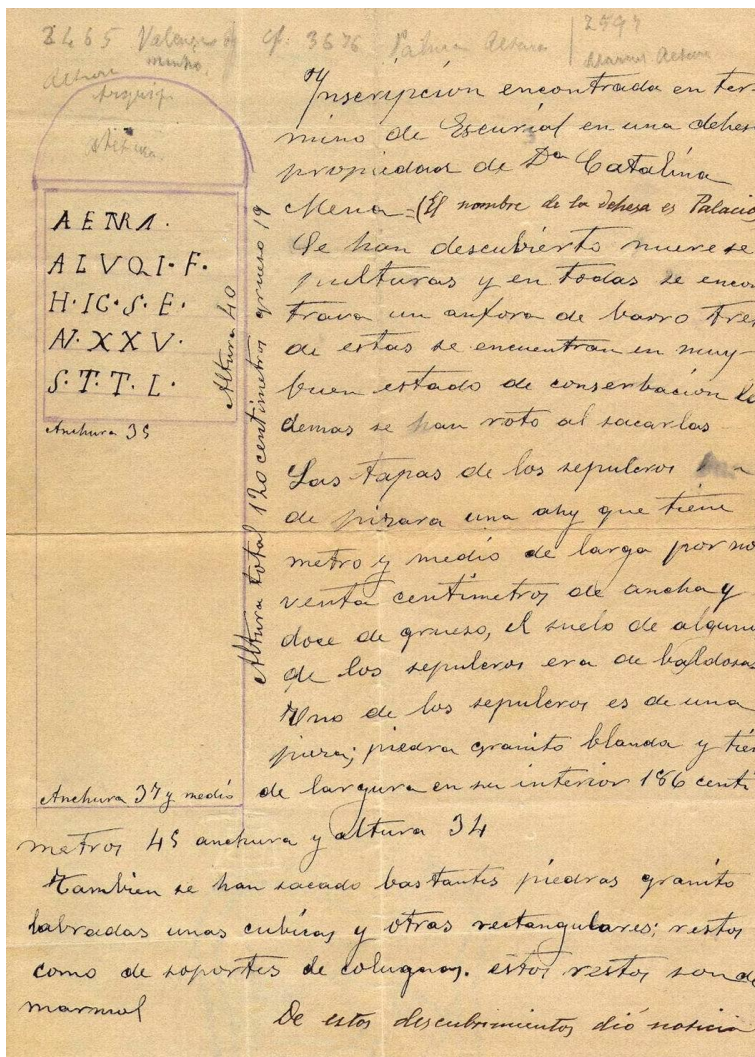 2465 Valença
minho.
cf. 3676 Palma Aetura
2597
AETRA.
ALVQI·F·
H·IC·S·E·
N·XXV·
S·T·T·L·
Altura 40
Anchura 35
Altura total 120 centimetros grueso 19
Anchura 37 y medio
Inscripción encontrada en ter-
mino de Escurial en una dehes
propiedad de Dª Catalina
Mena=(El nombre de la dehesa es Palacio
Se han descubierto nueve se
pulturas y en todas se encon
trava un anfora de barro tres
de estas se encuentran en muy
buen estado de conserbacion la
demas se han roto al sacarlas
Las tapas de los sepulcros
de pizara una ahy que tiene
metro y medio de larga por no
venta centimetros de ancha y
doce de grueso, el suelo de alguno
de los sepulcros era de baldosa
Uno de los sepulcros es de una
pieza; piedra granito blanda y tien
de largura en su interior 186 centi
metros 45 anchura y altura 34
Tambien se han sacado bastantes piedras granito
labradas unas cubicas y otras rectangulares; restos
como de soportes de colugnas. estos restos son de
marmol
De estos descubrimientos dió noticia